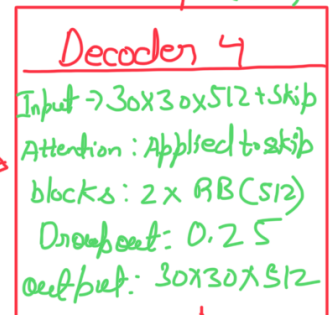 Decoder 4
Input -> 30x30x512 + Skip
Attention : Applied to skip
blocks : 2 x RB (512)
Dropout : 0.25
output : 30x30x512